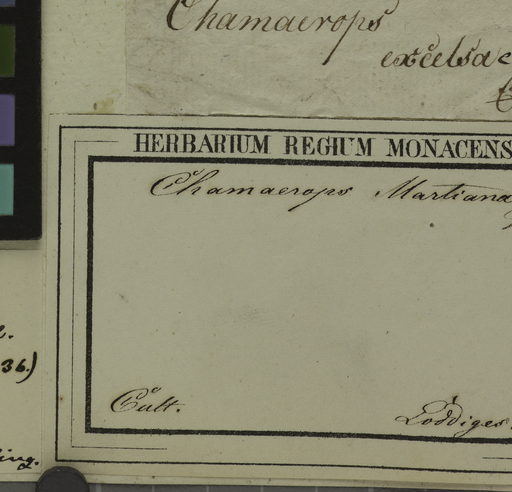 Chamaerops
excelsa
HERBARIUM REGIUM MONACENS
Chamaerops Martiana
36.)
Cult.
Loddiges.
ing.